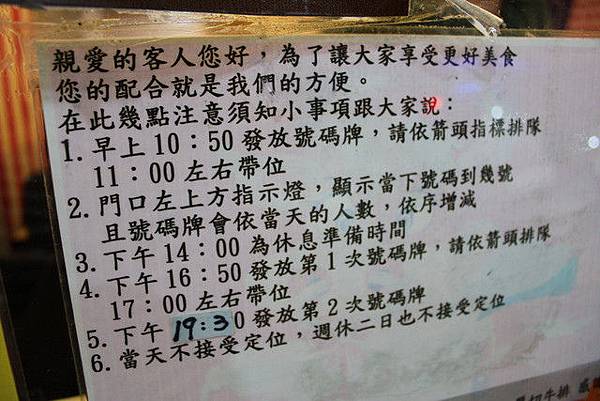 親愛的客人您好，為了讓大家享受更好美食
您的配合就是我們的方便。
在此幾點注意須知小事項跟大家說：
1. 早上 10：50 發放號碼牌，請依箭頭指標排隊
11：00 左右帶位
2. 門口左上方指示燈，顯示當下號碼到幾號
且號碼牌會依當天的人數，依序增減
3. 下午 14：00 為休息準備時間
4. 下午 16：50 發放第 1 次號碼牌，請依箭頭排隊
17：00 左右帶位
5. 下午 19：30 發放第 2 次號碼牌
6. 當天不接受定位，週休二日也不接受定位
切牛排